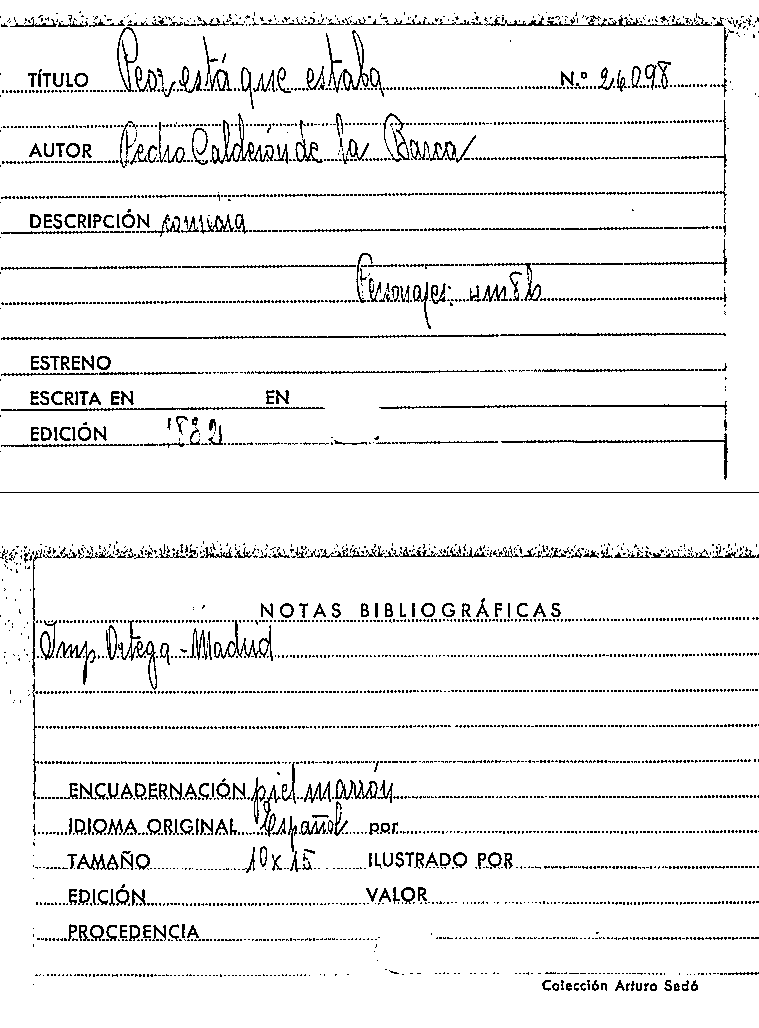 TÍTULO Peor está que estaba N.º 26098
AUTOR Pedro Calderón de la Barca
DESCRIPCIÓN comedia
Personajes: 4m 8h
ESTRENO
ESCRITA EN EN
EDICIÓN
NOTAS BIBLIOGRÁFICAS
Imp. Ortega - Madrid
ENCUADERNACIÓN piel marrón
IDIOMA ORIGINAL Español por
TAMAÑO 10 x 15 ILUSTRADO POR
EDICIÓN VALOR
PROCEDENCIA
Colección Arturo Sedó